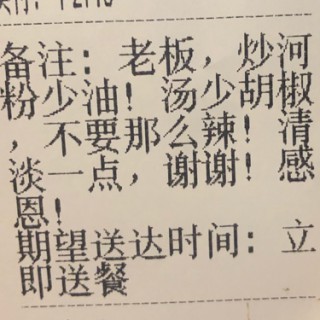 备注：老板，炒河
粉少油！汤少胡椒
，不要那么辣！清
淡一点，谢谢！感
恩！
期望送达时间：立
即送餐